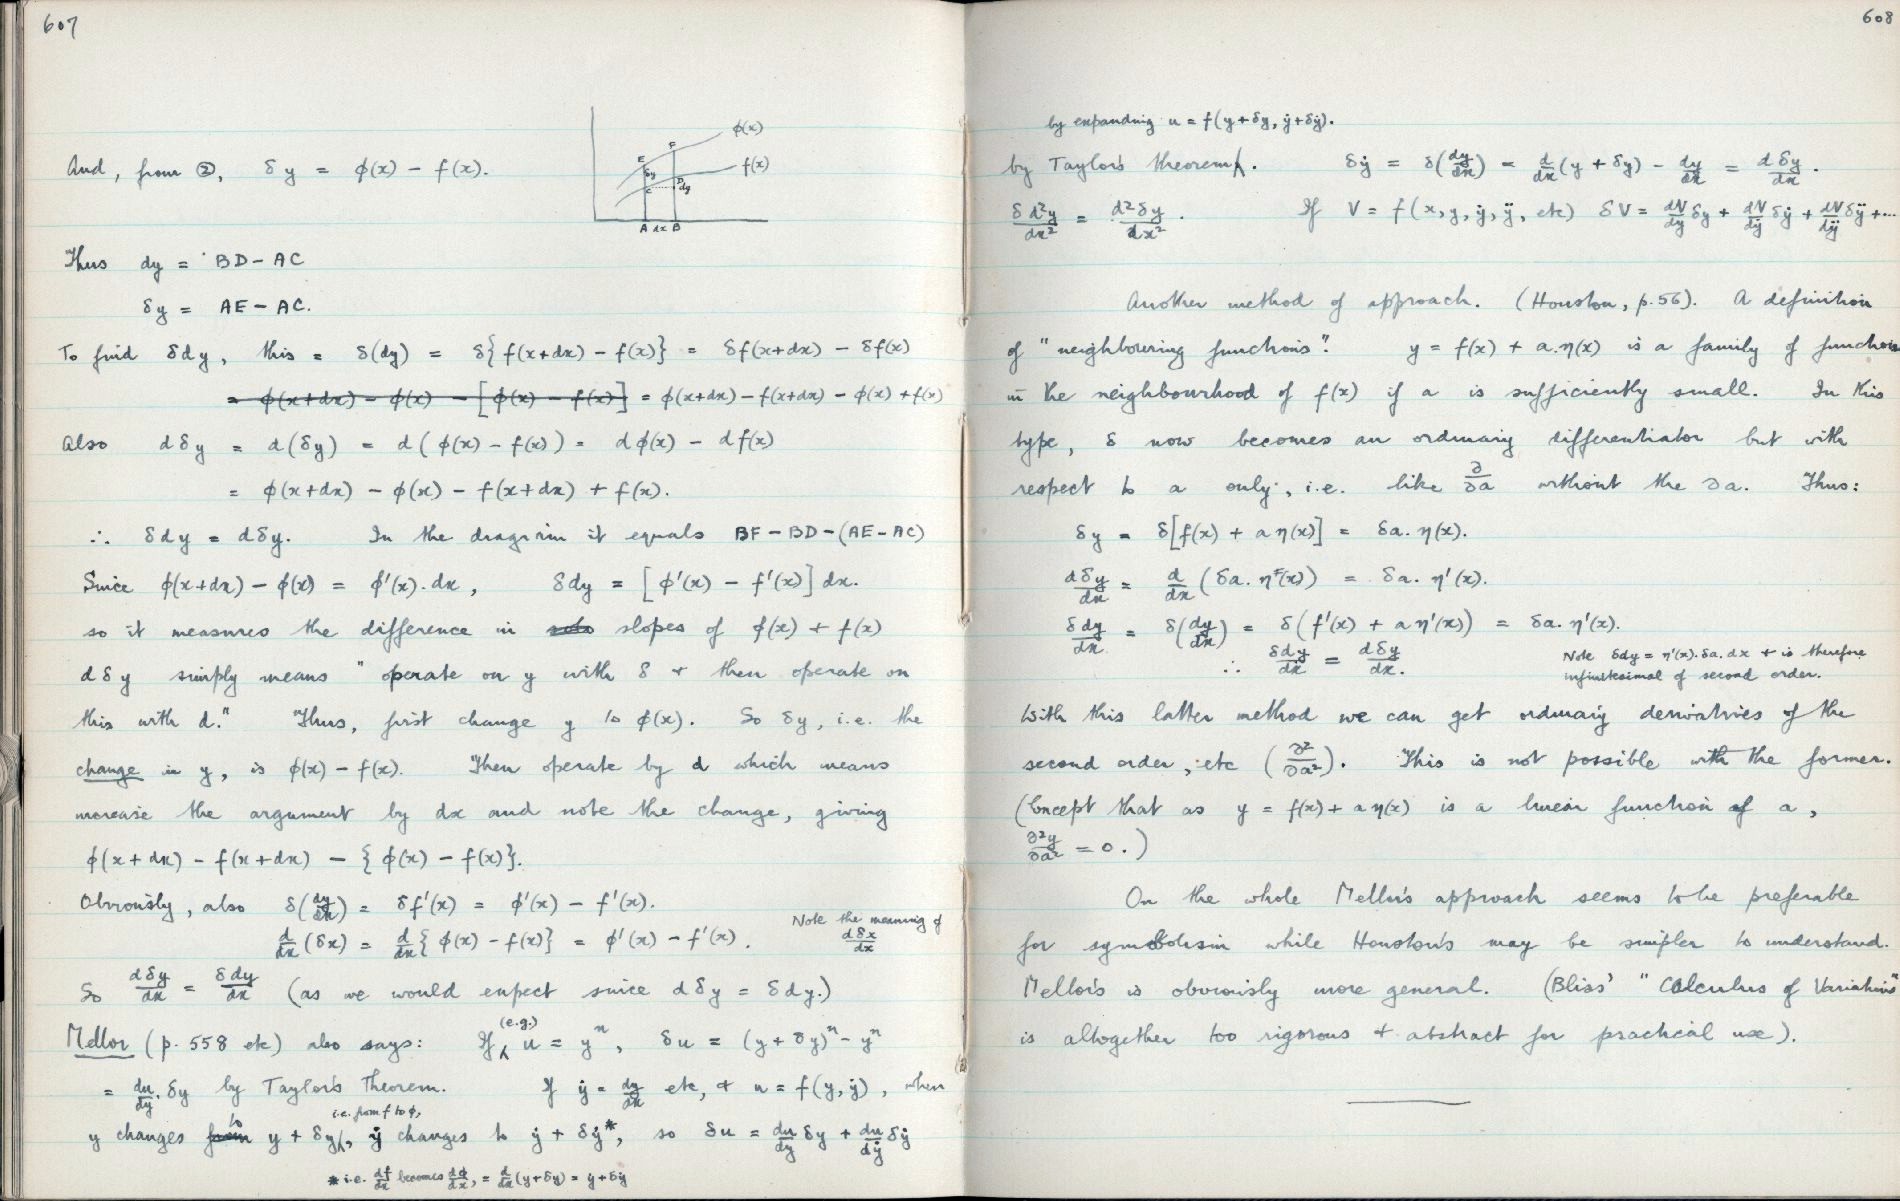 607
φ(x)
f(x)
E F
δy
C D dy
A dx B
And, from ②, δy = φ(x) − f(x).
Thus dy = BD − AC
δy = AE − AC.
To find δdy, this = δ(dy) = δ{f(x+dx) − f(x)} = δf(x+dx) − δf(x)
= φ(x+dx) − φ(x) − [φ(x) − f(x)] = φ(x+dx) − f(x+dx) − φ(x) + f(x)
Also dδy = d(δy) = d(φ(x) − f(x)) = dφ(x) − df(x)
= φ(x+dx) − φ(x) − f(x+dx) + f(x).
∴ δdy = dδy. In the diagram it equals BF − BD − (AE − AC)
Since φ(x+dx) − φ(x) = φ'(x).dx, δdy = [φ'(x) − f'(x)]dx.
so it measures the difference in slopes of φ(x) + f(x)
dδy simply means "operate on y with δ + then operate on
this with d." Thus, first change y to φ(x). So δy, i.e. the
change in y, is φ(x) − f(x). Then operate by d which means
increase the argument by dx and note the change, giving
φ(x+dx) − f(x+dx) − {φ(x) − f(x)}.
Obviously, also δ(dy/dx) = δf'(x) = φ'(x) − f'(x).
d/dx(δx) = d/dx{φ(x) − f(x)} = φ'(x) − f'(x).
Note the meaning of
dδx/dx
So dδy/dx = δdy/dx (as we would expect since dδy = δdy.)
Mellor (p. 558 etc) also says: If (e.g.) u = yⁿ, δu = (y + δy)ⁿ − yⁿ
= du/dy.δy by Taylor's theorem. If ẏ = dy/dx etc, + u = f(y, ẏ), when
i.e. from f to φ,
y changes from to y + δy, ẏ changes to ẏ + δẏ*, so δu = du/dy δy + du/dẏ δẏ
* i.e. df/dx becomes dφ/dx, = d/dx(y+δy) = ẏ + δẏ
608
by expanding u = f(y+δy, ẏ+δẏ).
by Taylor's theorem. δẏ = δ(dy/dx) = d/dx(y + δy) − dy/dx = dδy/dx.
δd²y/dx² = d²δy/dx². If V = f(x, y, ẏ, ÿ, etc) δV = dV/dy δy + dV/dẏ δẏ + dV/dÿ δÿ + ...
Another method of approach. (Houston, p. 56). A definition
of "neighbouring functions". y = f(x) + a.η(x) is a family of functions
in the neighbourhood of f(x) if a is sufficiently small. In this
type, δ now becomes an ordinary differentiator but with
respect to a only, i.e. like ∂/∂a without the ∂a. Thus:
δy = δ[f(x) + aη(x)] = δa.η(x).
dδy/dx = d/dx(δa.η(x)) = δa.η'(x).
δdy/dx = δ(dy/dx) = δ(f'(x) + aη'(x)) = δa.η'(x).
∴ δdy/dx = dδy/dx.
Note δdy = η'(x).δa.dx + is therefore
infinitesimal of second order.
With this latter method we can get ordinary derivatives of the
second order, etc (∂²/∂a²). This is not possible with the former.
(Except that as y = f(x) + aη(x) is a linear function of a,
∂²y/∂a² = 0.)
On the whole Mellor's approach seems to be preferable
for symbolism while Houston's may be simpler to understand.
Mellor's is obviously more general. (Bliss' "Calculus of Variations"
is altogether too rigorous + abstract for practical use).